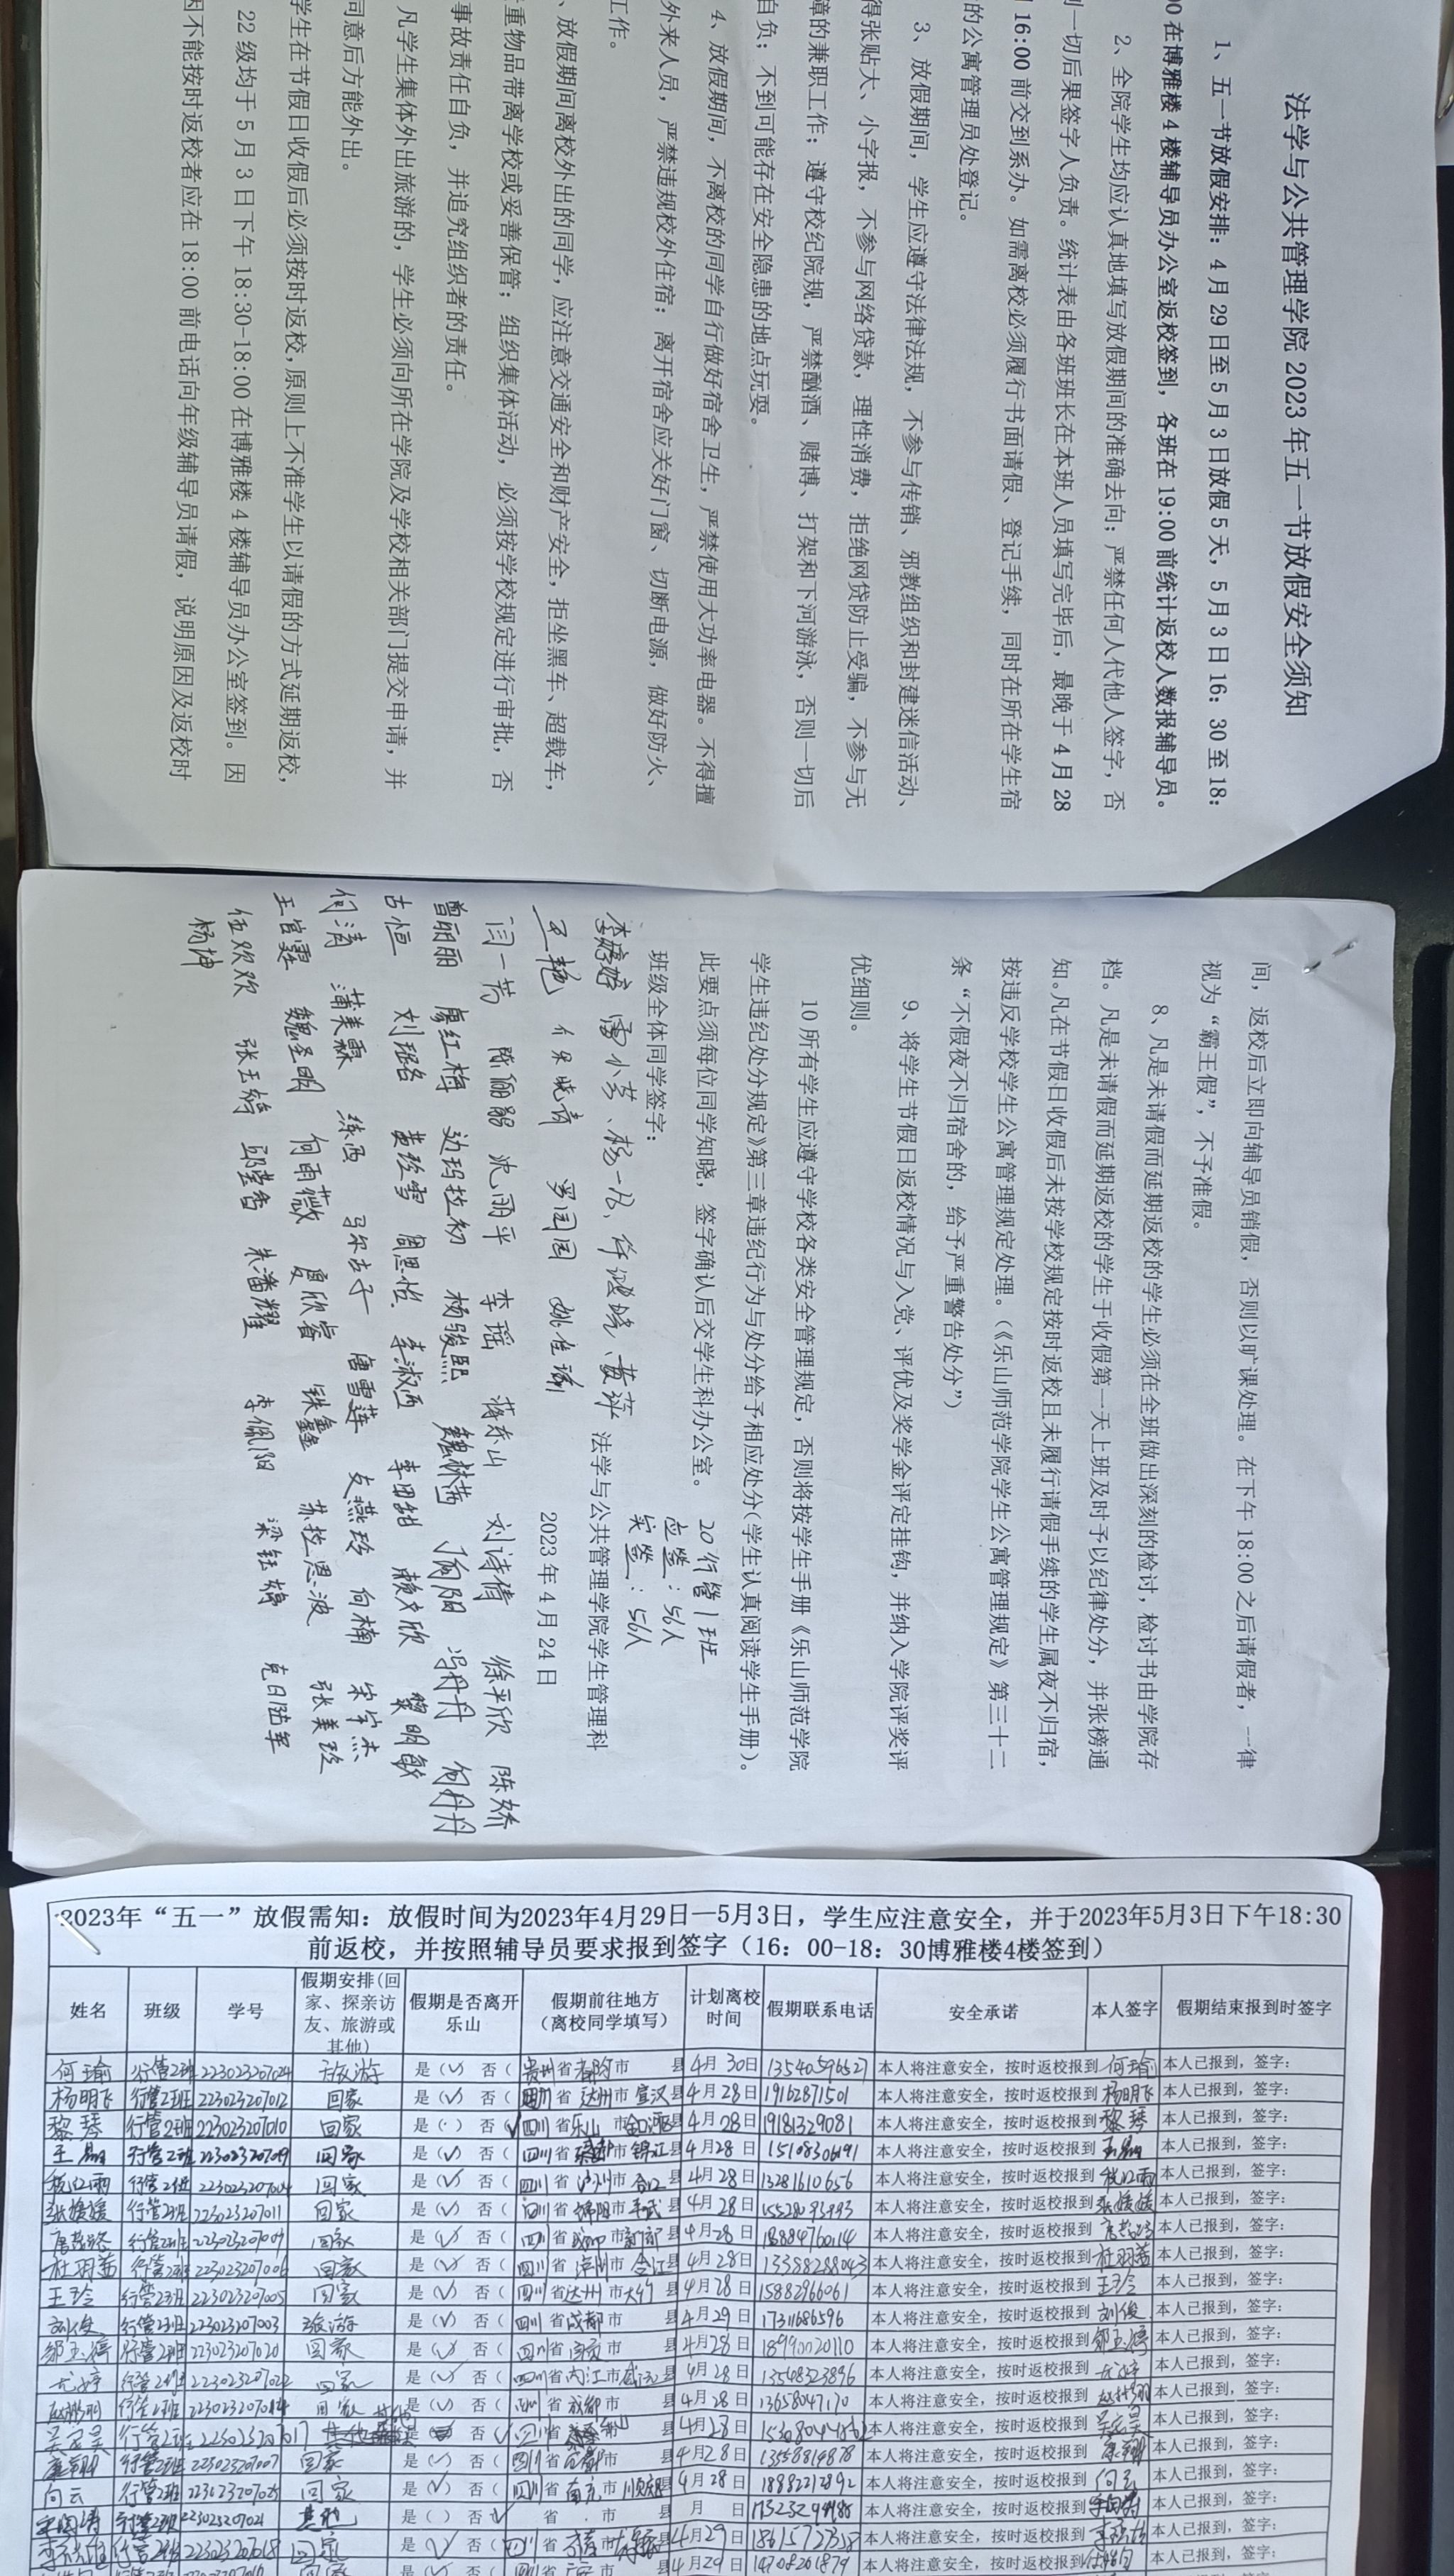 法学与公共管理学院 2023 年五一节放假安全须知
1、五一节放假安排：4 月 29 日至 5 月 3 日放假 5 天，5 月 3 日 16：30 至 18：
00 在博雅楼 4 楼辅导员办公室返校签到，各班在 19:00 前统计返校人数报辅导员。
2、全院学生均应认真地填写放假期间的准确去向；严禁任何人代他人签字，否
则一切后果签字人负责。统计表由各班班长在本班人员填写完毕后，最晚于 4 月 28
16:00 前交到系办。如需离校必须履行书面请假、登记手续，同时在所在学生宿
的公寓管理员处登记。
3、放假期间，学生应遵守法律法规，不参与传销、邪教组织和封建迷信活动、
得张贴大、小字报，不参与网络贷款，理性消费，拒绝网贷防止受骗，不参与无
障的兼职工作；遵守校纪院规，严禁酗酒、赌博、打架和下河游泳，否则一切后
自负；不到可能存在安全隐患的地点玩耍。
4、放假期间，不离校的同学自行做好宿舍卫生，严禁使用大功率电器。不得擅
外来人员，严禁违规校外住宿；离开宿舍应关好门窗、切断电源，做好防火、
工作。
、放假期间离校外出的同学，应注意交通安全和财产安全，拒坐黑车、超载车，
重物品带离学校或妥善保管；组织集体活动，必须按学校规定进行审批，否
事故责任自负，并追究组织者的责任。
凡学生集体外出旅游的，学生必须向所在学院及学校相关部门提交申请，并
同意后方能外出。
学生在节假日收假后必须按时返校，原则上不准学生以请假的方式延期返校，
22 级均于 5 月 3 日下午 18:30-18:00 在博雅楼 4 楼辅导员办公室签到。因
因不能按时返校者应在 18:00 前电话向年级辅导员请假，说明原因及返校时
间，返校后立即向辅导员销假，否则以旷课处理。在下午 18:00 之后请假者，一律
视为“霸王假”，不予准假。
8、凡是未请假而延期返校的学生必须在全班做出深刻的检讨，检讨书由学院存
档。凡是未请假而延期返校的学生于收假第一天上班及时予以纪律处分，并张榜通
知。凡在节假日收假后未按学校规定按时返校且未履行请假手续的学生属夜不归宿，
按违反学校学生公寓管理规定处理。（《乐山师范学院学生公寓管理规定》第三十二
条“不假夜不归宿舍的，给予严重警告处分”）
9、将学生节假日返校情况与入党、评优及奖学金评定挂钩，并纳入学院评奖评
优细则。
10 所有学生应遵守学校各类安全管理规定，否则将按学生手册《乐山师范学院
学生违纪处分规定》第三章违纪行为与处分给予相应处分（学生认真阅读学生手册）。
此要点须每位同学知晓，签字确认后交学生科办公室。 20行管1班
班级全体同学签字： 应签：56人
实签：56人
李婷婷 雷小芳、杨一 黄萍 法学与公共管理学院学生管理科
王艳 罗园园 姚佳 2023 年 4 月 24 日
闫一芳 陈丽 沈丽平 李瑶 蒋东山 刘诗倩 徐平欣 陈娇
曾丽丽 廖红梅 边玛拉初 杨骏熙 魏 向阳 冯丹丹 何丹丹
古恒 刘琚名 黄玲雪 周思怡 李淑西 李田甜 赖欣 黎明敏
何清 蒲美霖 练西 马尔古子 唐雪莲 文燕玲 何楠 宋宇杰
王官霖 魏圣明 何雨薇 夏欣睿 铁鑫鑫 苏拉思波 张美玲
伍欢欢 张玉娟 邱莹香 朱潘耀 李佩阳 梁钰婷 克日陆军
杨坤
2023年“五一”放假需知：放假时间为2023年4月29日—5月3日，学生应注意安全，并于2023年5月3日下午18:30
前返校，并按照辅导员要求报到签字（16：00-18：30博雅楼4楼签到）
姓名 班级 学号 假期安排(回家、探亲访友、旅游或其他) 假期是否离开乐山 假期前往地方（离校同学填写） 计划离校时间 假期联系电话 安全承诺 本人签字 假期结束报到时签字
何瑜 行管2班 223023207024 旅游 是（√） 否（ 贵州省贵阳市 县 4月30日 13540596527 本人将注意安全，按时返校报到 何瑜 本人已报到，签字：
杨明飞 行管2班 223023207012 回家 是（√） 否（ 四川省达州市宣汉县 4月28日 19162871501 本人将注意安全，按时返校报到 杨明飞 本人已报到，签字：
黎琴 行管2班 223023207010 回家 是（ ） 否（√ 四川省乐山市金口河县 4月28日 19181329081 本人将注意安全，按时返校报到 黎琴 本人已报到，签字：
王 行管2班 223023207019 回家 是（√） 否（ 四川省成都市锦江县 4月28日 15108306191 本人将注意安全，按时返校报到 本人已报到，签字：
行管2班 223023207004 回家 是（√） 否（ 四川省泸州市合江县 4月28日 13281610656 本人将注意安全，按时返校报到 本人已报到，签字：
张媛媛 行管2班 223023207011 回家 是（√） 否（ 四川省绵阳市平武县 4月28日 15528093993 本人将注意安全，按时返校报到 张媛媛 本人已报到，签字：
唐 行管2班 223023207009 回家 是（√） 否（ 四川省 市 县 4月28日 18884760114 本人将注意安全，按时返校报到 本人已报到，签字：
杜羽茜 行管2班 223023207006 回家 是（√） 否（ 四川省泸州市合江县 4月28日 13388288043 本人将注意安全，按时返校报到 杜羽茜 本人已报到，签字：
王玲 行管2班 223023207005 回家 是（√） 否（ 四川省达州市大竹县 4月28日 15882966061 本人将注意安全，按时返校报到 王玲 本人已报到，签字：
刘俊 行管2班 223023207003 旅游 是（√） 否（ 四川省成都市 县 4月29日 17311686596 本人将注意安全，按时返校报到 刘俊 本人已报到，签字：
邹玉婷 行管2班 223023207020 回家 是（√） 否（ 四川省 市 县 4月28日 18990020110 本人将注意安全，按时返校报到 邹玉婷 本人已报到，签字：
行管2班 22302320702 回家 是（√） 否（ 四川省内江市威远县 4月28日 13548323896 本人将注意安全，按时返校报到 本人已报到，签字：
行管2班 223023207014 回家 是（√） 否（ 四川省成都市 县 4月28日 13658047170 本人将注意安全，按时返校报到 本人已报到，签字：
吴 行管2班 223023207017 其他 是 否（√ 四川省 市 县 4月28日 本人将注意安全，按时返校报到 本人已报到，签字：
行管2班 223023207007 回家 是（√） 否（ 四川省 市 县 4月28日 13558819878 本人将注意安全，按时返校报到 本人已报到，签字：
向云 行管2班 223023207025 回家 是（√） 否（ 四川省南充市 县 4月28日 18882212892 本人将注意安全，按时返校报到 向云 本人已报到，签字：
行管2班 223023207021 其他 是（ ） 否（√ 省 市 县 月 日 本人将注意安全，按时返校报到 本人已报到，签字：
行管2班 223023207018 回家 是（√） 否（ 四川省 市 县 4月29日 本人将注意安全，按时返校报到 本人已报到，签字：
4月29日 14708261879 本人将注意安全，按时返校报到 本人已报到，签字：